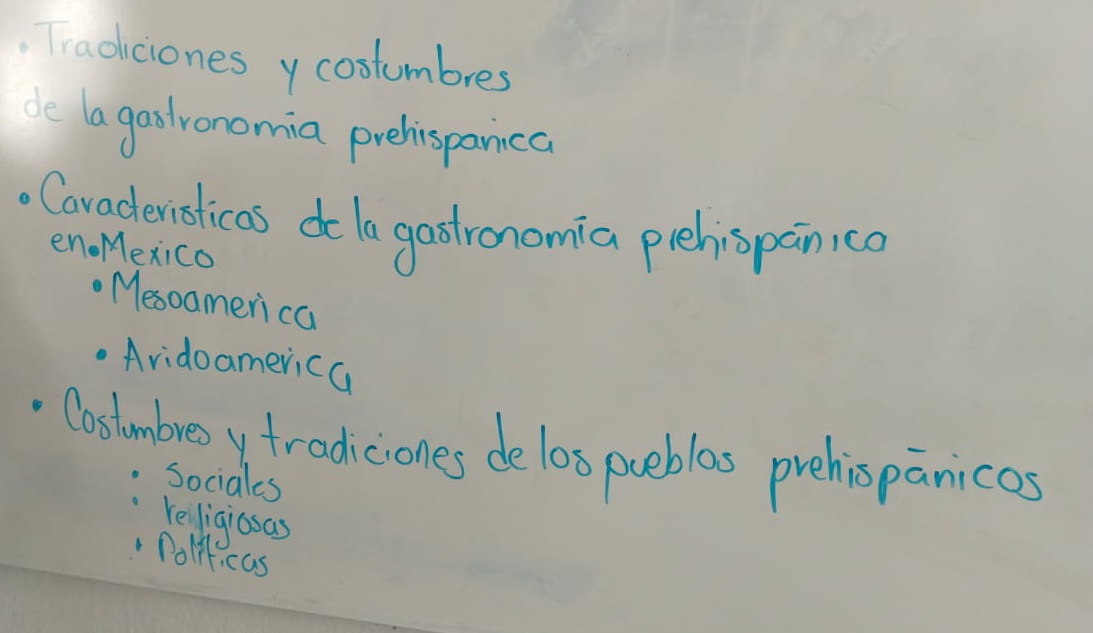 • Tradiciones y costumbres
de la gastronomia prehispanica
• Caracteristicas de la gastronomía prehispánica
en•Mexico
• Mesoamerica
• Aridoamerica
• Costumbres y tradiciones de los pueblos prehispánicos
• Sociales
• religiosas
• Políticas